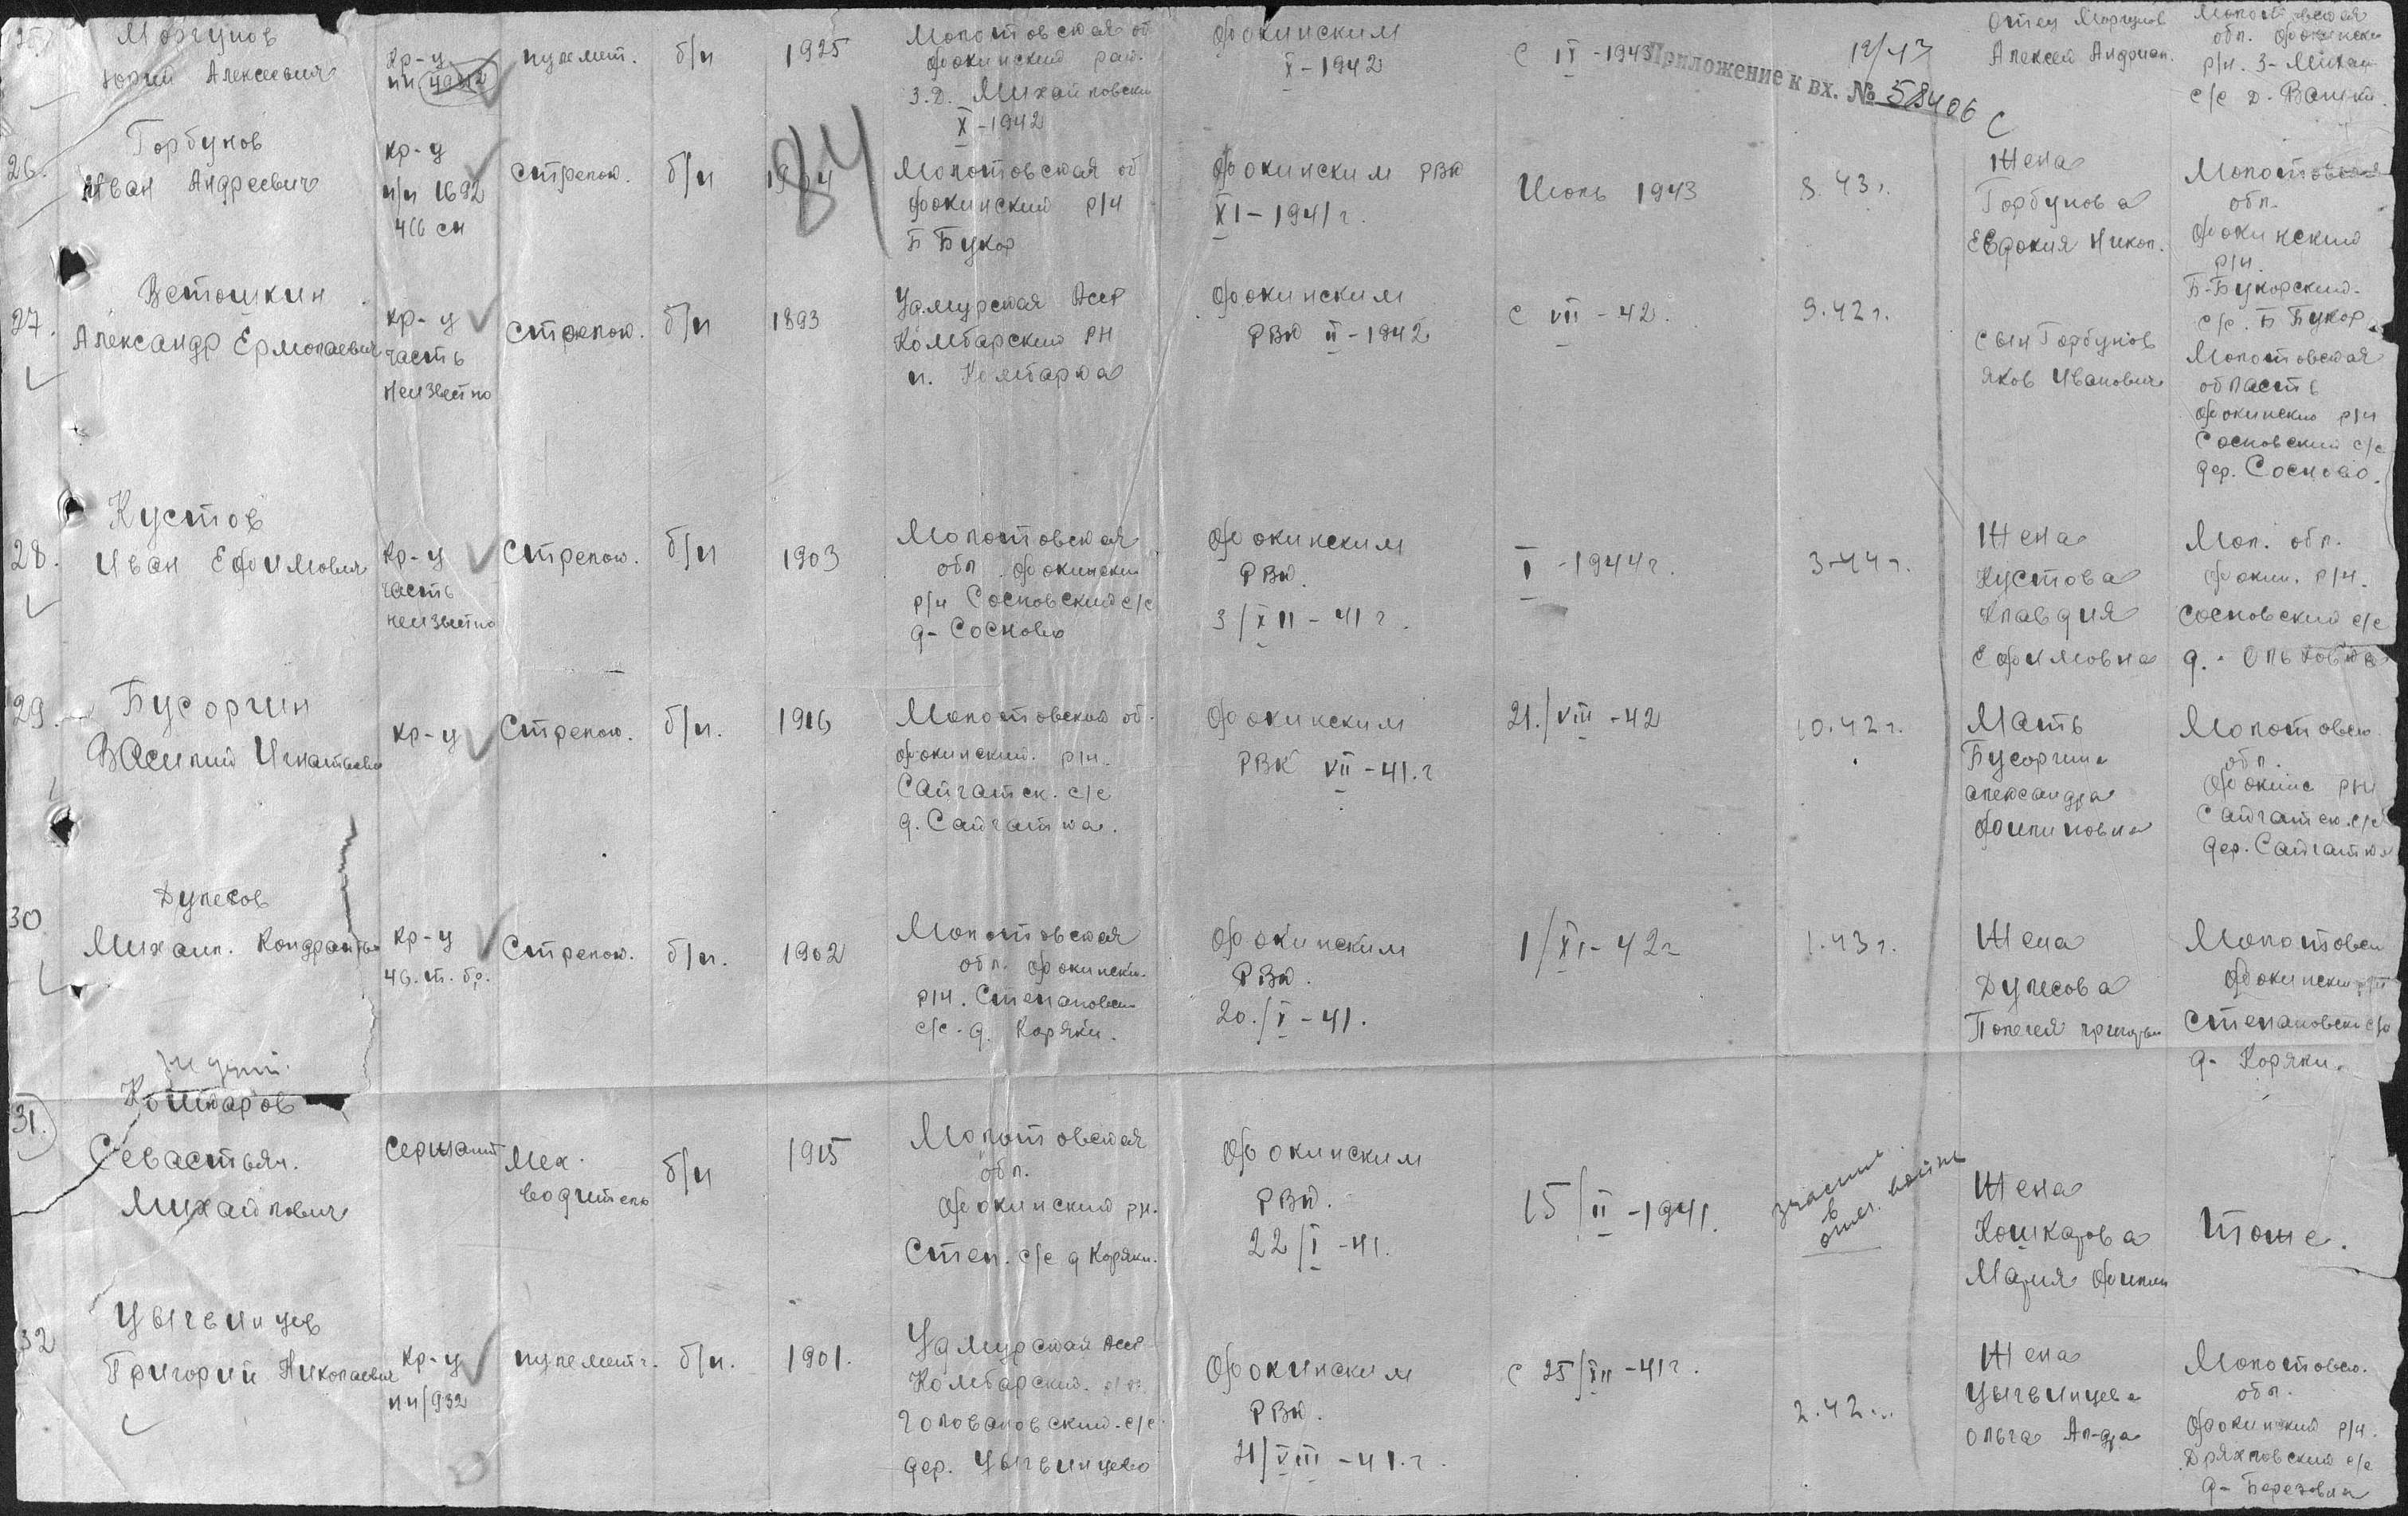 25) Моргунов
Юрий Алексеевич
кр-ц
пулемет.
б/п
1925
Молотовская об
Фокинский рай.
З.Д. Михайловски
X-1942
Фокинским
X-1942
с II-1943
Приложение к вх. № 58406
12/43
Отец Моргунов
Алексей Андриан.
Молотовская
обл. Фокински
р/н. З-Михай
с/с д. Вашки
84
26. Горбунов
Иван Андреевич
кр-ц
п/п 1692
416 сп
стрелок.
б/п
Молотовская об
Фокинский р/н
Б Букор
Фокинским РВК
XI-1941г.
Июль 1943
8.43г.
Жена
Горбунова
Евдокия Никол.
Молотовская
обл.
Фокинский
р/н.
Б-Букорский-
с/с. Б Букор
27. Ветошкин
Александр Ермолаевич
кр-ц
часть
неизвестно
стрелок.
б/п
1893
Удмурская Асср
Комбарский РН
п. Комбарка
Фокинским
РВК II-1942
с VII-42.
9.42г.
сын Горбунов
Яков Иванович
Молотовская
область
Фокинский р/н
Сосновский с/с
дер. Сосново.
28. Кустов
Иван Ефимович
кр-ц
часть
неизвестно
Стрелок.
б/п
1903
Молотовская
обл. Фокинский
р/н Сосновский с/с
д- Сосново
Фокинским
РВК.
3/XII-41г.
I-1944г.
3-44г.
Жена
Кустова
Клавдия
Ефимовна
Мол. обл.
Фокин. р/н.
Сосновский с/с
д. Ольховка
29. Бусоргин
Василий Игнатьевич
кр-ц
Стрелок.
б/п.
1916
Молотовской об.
Фокинский. р/н.
Сайгатск. с/с
д. Сайгатка.
Фокинским
РВК VII-41.г
21./VIII-42
10.42г.
Мать
Бусоргина
Александра
Филиповна
Молотовск
обл.
Фокинс РН
Сайгатск. с/с
дер. Сайгатка
30 Дулесов
Михаил. Кондратье
кр-ц
46. т. бр.
Стрелок.
б/п.
1902
Молотовская
обл. Фокински.
р/н. Степановски
с/с. д. Коряки.
Фокинским
РВК.
20./X-41.
1/XI-42г
1.43г.
Жена
Дулесова
Пелагея
Молотовск
Фокински р/н
Степановски с/с
д- Коряки.
31.) Кошкаров
Севастьян.
Михайлович
Сержант
Мех.
водитель
б/п
1915
Молотовская
обл.
Фокинский рн.
Степ. с/с д Коряки.
Фокинским
РВК.
22/I-41.
15/II-1941.
участник
в
отеч. войне
Жена
Кошкарова
Мария Филип
Тоже.
32 Цыгвинцев
Григорий Николаевич
кр-ц
пп/932
пулеметч.
б/п.
1901.
Удмурская Асср
Комбарский. р/н.
Головановский. с/с.
дер. Цыгвинцево
Фокинским
РВК.
21/VIII-41.г.
с 25/XII-41г.
2.42г.
Жена
Цыгвинцева
Ольга Ал-др
Молотовск.
обл.
Фокинский р/н.
Дряхловский с/с
д- Березовка